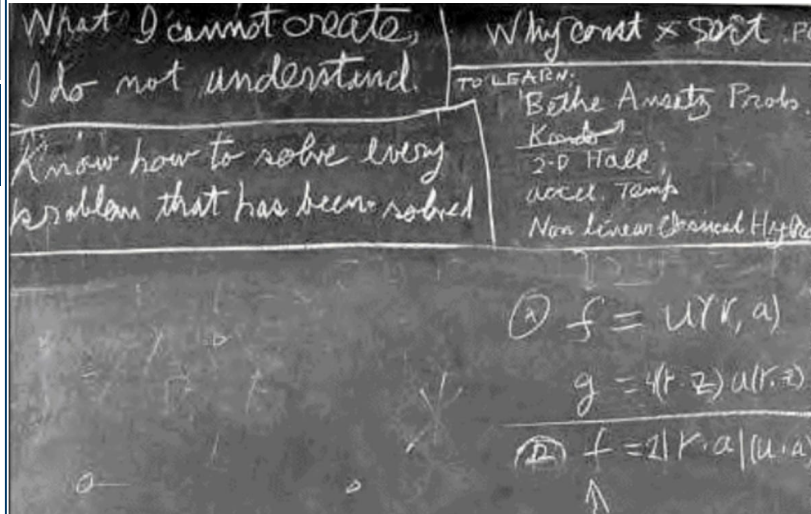 What I cannot create,
I do not understand.
Know how to solve every
problem that has been solved
Why const × sort
TO LEARN:
Bethe Ansatz Probs
Kondo
2-D Hall
accel. Temp
Non linear Classical Hydro
f = u(r, a)
g = 4(r·z) u(r,z)
f = 2|r·a|(u·a)